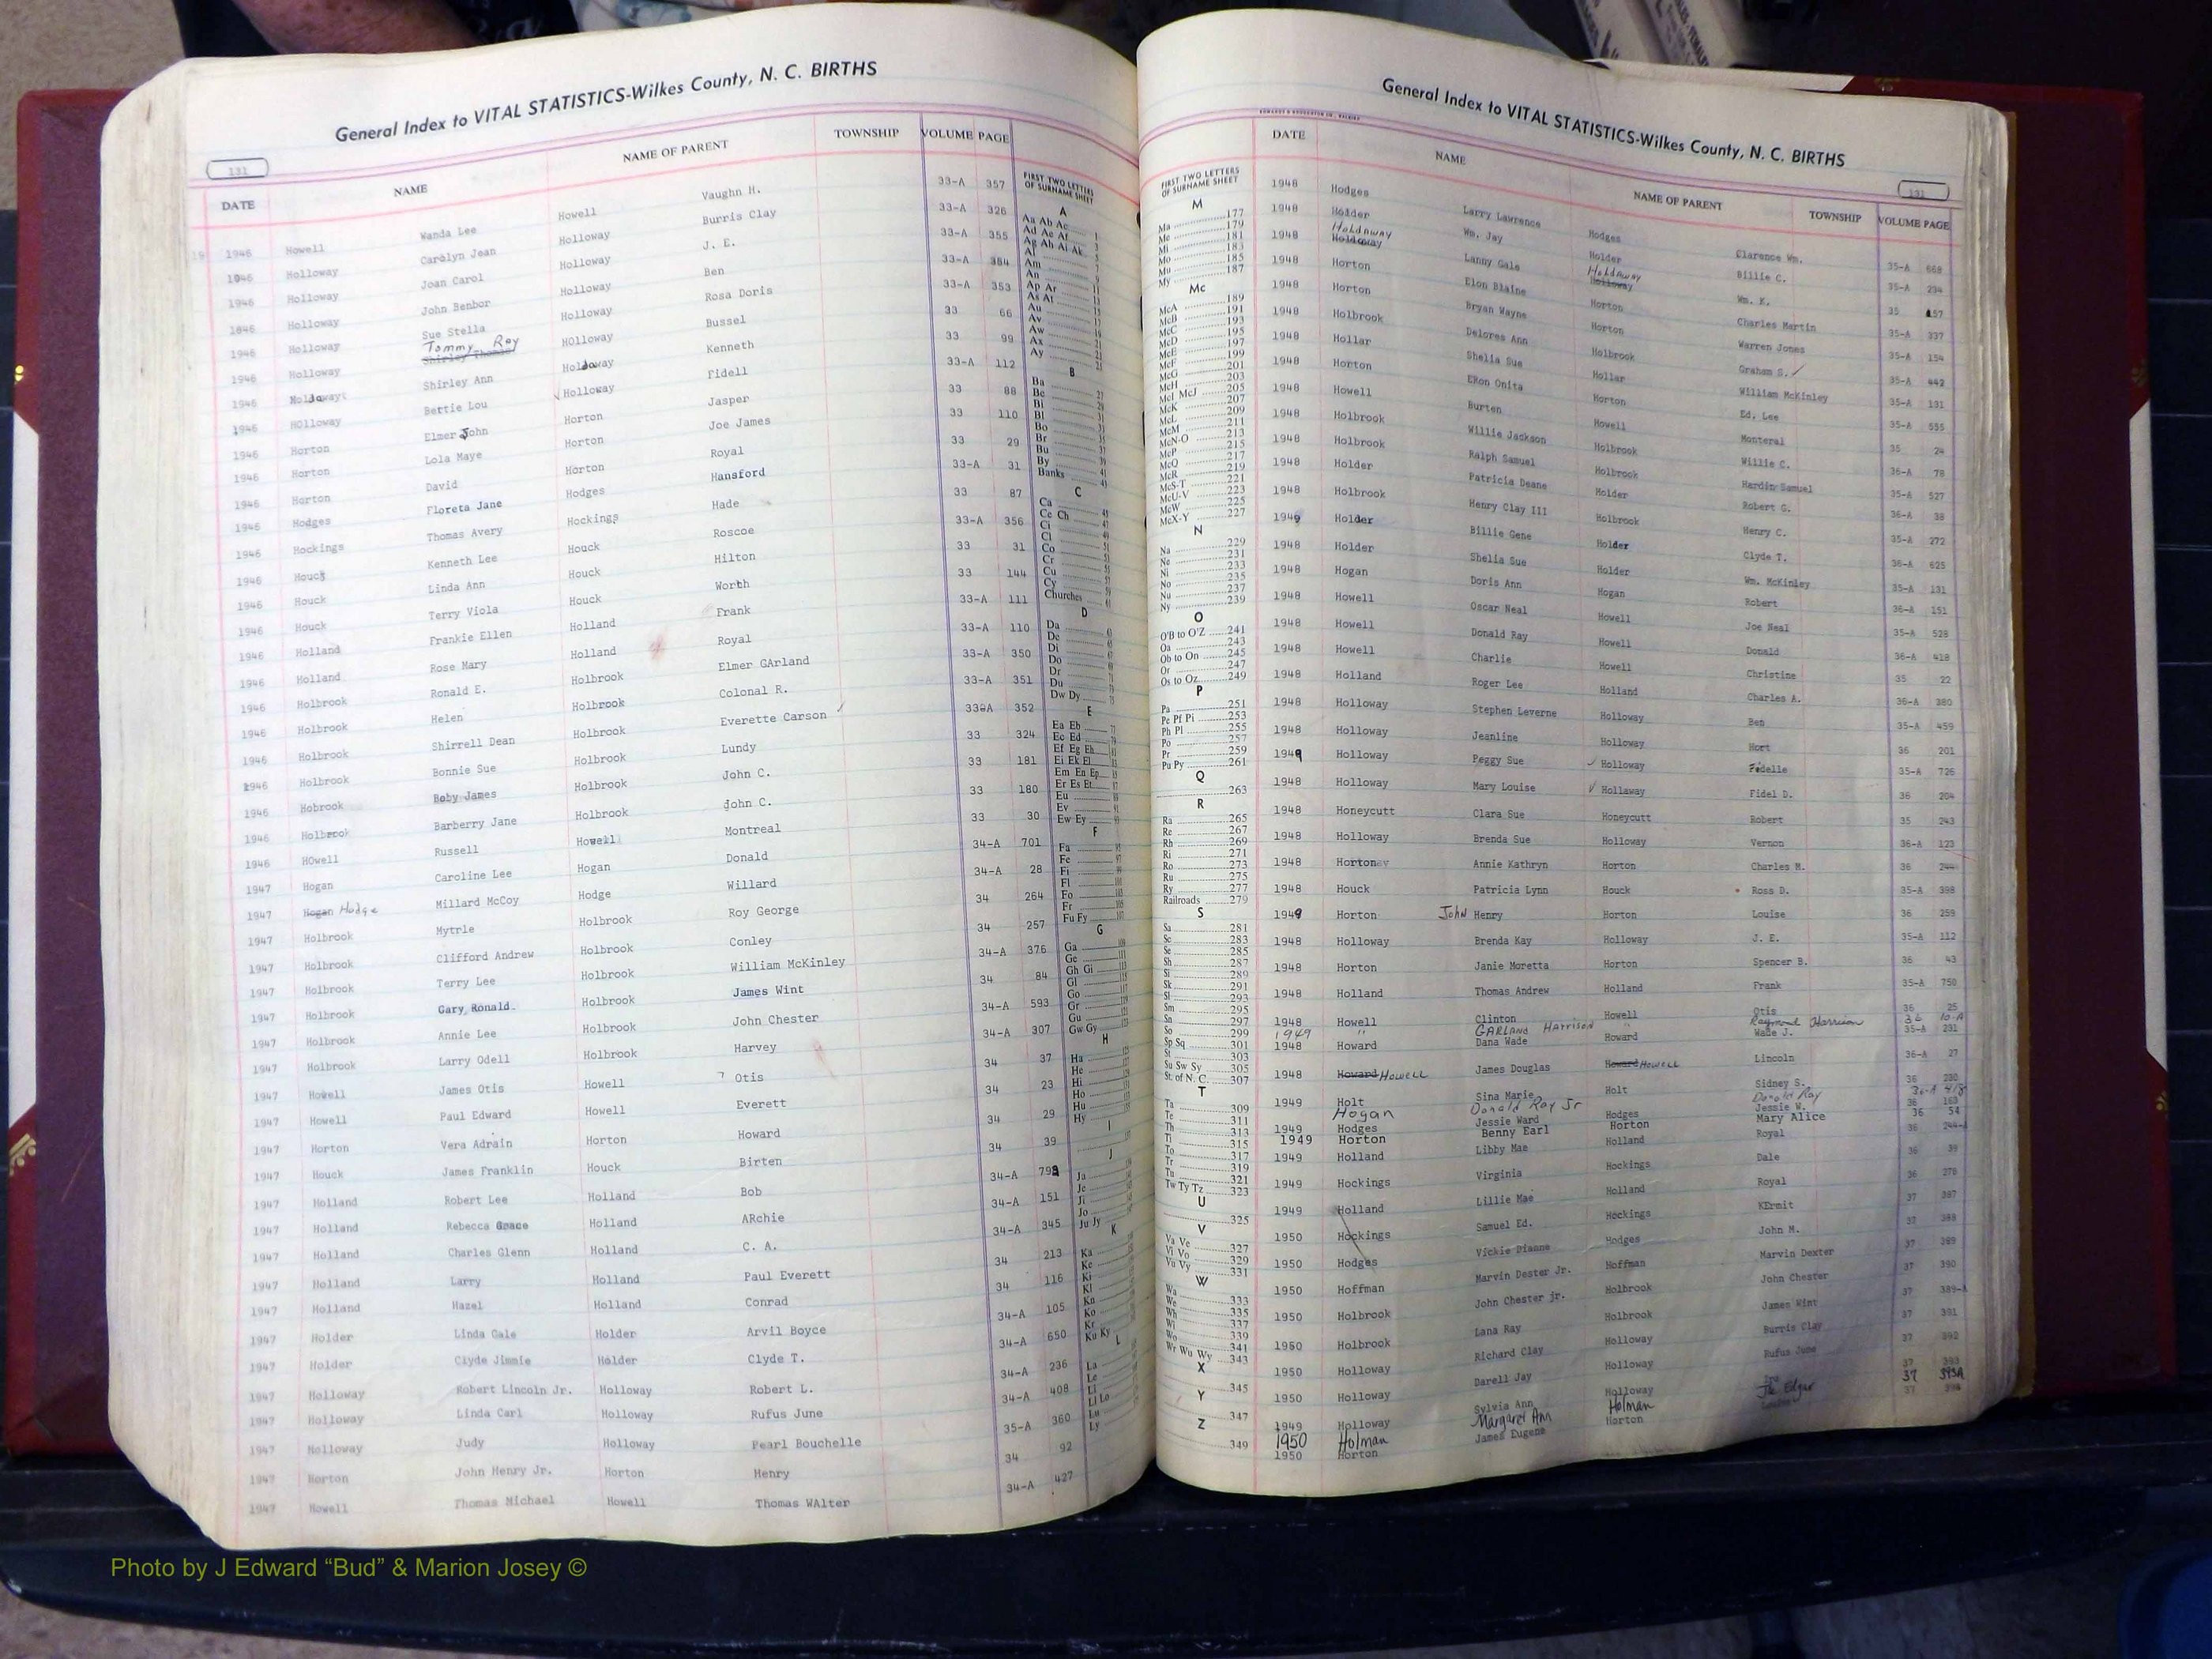 General Index to VITAL STATISTICS-Wilkes County, N. C. BIRTHS
131
DATE NAME NAME OF PARENT TOWNSHIP VOLUME PAGE
1946 Howell Wanda Lee Howell Vaughn H. 33-A 357
1946 Holloway Carolyn Jean Holloway Burris Clay 33-A 326
1946 Holloway Joan Carol Holloway J. E. 33-A 355
1846 Holloway John Benbor Holloway Ben 33-A 354
1946 Holloway Sue Stella Holloway Rosa Doris 33-A 353
Tommy Ray
1946 Holloway Shirley Thomas HOlloway Bussel 33 66
1946 Shirley Ann Holdaway Kenneth 33 99
1946 HOlloway Bertie Lou Holloway Fidell 33-A 112
1946 Horton Elmer John Horton Jasper 33 88
1946 Horton Lola Maye Horton Joe James 33 110
1946 Horton David Horton Royal 33 29
1946 Hodges Floreta Jane Hodges Hansford 33-A 31
1946 Hockings Thomas Avery Hockings Hade 33 87
1946 Houck Kenneth Lee Houck Roscoe 33-A 356
1946 Houck Linda Ann Houck Hilton 33 31
1946 Houck Terry Viola Houck Worth 33 144
1946 Holland Frankie Ellen Holland Frank 33-A 111
1946 Holland Rose Mary Holland Royal 33-A 110
1946 Holbrook Ronald E. Holbrook Elmer GArland 33-A 350
1946 Holbrook Helen Holbrook Colonal R. 33-A 351
1946 Holbrook Shirrell Dean Holbrook Everette Carson 33-A 352
1946 Holbrook Bonnie Sue Holbrook Lundy 33 324
1946 Hobrook Boby James Holbrook John C. 33 181
1946 Holbrook Barberry Jane Holbrook John C. 33 180
1946 HOwell Russell Howell Montreal 33 30
1947 Hogan Caroline Lee Hogan Donald 34-A 701
1947 Hogan Hodge Millard McCoy Hodge Willard 34-A 28
1947 Holbrook Myrtle Holbrook Roy George 34 264
1947 Holbrook Clifford Andrew Holbrook Conley 34 257
1947 Holbrook Terry Lee Holbrook William McKinley 34-A 376
1947 Holbrook Gary Ronald Holbrook James Wint 34 84
1947 Holbrook Annie Lee Holbrook John Chester 34-A 593
1947 Holbrook Larry Odell Holbrook Harvey 34-A 307
1947 Howell James Otis Howell Otis 34 37
1947 Howell Paul Edward Howell Everett 34 23
1947 Horton Vera Adrain Horton Howard 34 29
1947 Houck James Franklin Houck Birten 34 39
1947 Holland Robert Lee Holland Bob 34-A
1947 Holland Rebecca Grace Holland ARchie 34-A 151
1947 Holland Charles Glenn Holland C. A. 34-A 345
1947 Holland Larry Holland Paul Everett 34 213
1947 Holland Hazel Holland Conrad 34 116
1947 Holder Linda Gale Holder Arvil Boyce 34-A 105
1947 Holder Clyde Jimmie Holder Clyde T. 34-A 650
1947 Holloway Robert Lincoln Jr. Holloway Robert L. 34-A 236
1947 Holloway Linda Carl Holloway Rufus June 34-A 408
1947 Holloway Judy Holloway Pearl Bouchelle 35-A 360
1947 Horton John Henry Jr. Horton Henry 34 92
1947 Howell Thomas Michael Howell Thomas WAlter 34-A 427
FIRST TWO LETTERS
OF SURNAME SHEET
A
Aa Ab Ac
Ad Ae Af
Ag Ah Ai Ak
Al
Am
An
Ap Ar
As At
Au
Av
Aw
Ax
Ay
B
Ba
Be
Bi
Bl
Bo
Br
Bu
By
Banks
C
Ca
Ce Ch
Ci
Cl
Co
Cr
Cu
Cy
Churches
D
Da
De
Di
Do
Dr
Du
Dw Dy
E
Ea Eb
Ec Ed
Ef Eg Eh
Ei Ek El
Em En Ep
Er Es Et
Eu
Ev
Ew Ey
F
Fa
Fe
Fi
Fl
Fo
Fr
Fu Fy
G
Ga
Ge
Gh Gi
Gl
Go
Gr
Gu
Gw Gy
H
Ha
He
Hi
Ho
Hu
Hy
I
J
Ja
Je
Ji
Jo
Ju Jy
K
Ka
Ke
Ki
Kl
Kn
Ko
Kr
Ku Ky
L
La
Le
Li
Ll Lo
Lu
Ly
General Index to VITAL STATISTICS-Wilkes County, N. C. BIRTHS
131
FIRST TWO LETTERS
OF SURNAME SHEET
M
Ma 177
Me 179
Mi 181
Mo 183
Mu 185
My 187
Mc
McA 189
McB 191
McC 193
McD 195
McE 197
McF 199
McG 201
McH 203
McI McJ 205
McK 207
McL 209
McM 211
McN-O 213
McP 215
McQ 217
McR 219
McS-T 221
McU-V 223
McW 225
McX-Y 227
N
Na 229
Ne 231
Ni 233
No 235
Nu 237
Ny 239
O
O'B to O'Z 241
Oa 243
Ob to On 245
Or 247
Os to Oz 249
P
Pa 251
Pe Pf Pi 253
Ph Pl 255
Po 257
Pr 259
Pu Py 261
Q
263
R
Ra 265
Re 267
Rh 269
Ri 271
Ro 273
Ru 275
Ry 277
Railroads 279
S
Sa 281
Sc 283
Se 285
Sh 287
Si 289
Sk 291
Sl 293
Sm 295
Sn 297
So 299
Sp Sq 301
St 303
Su Sw Sy 305
St. of N. C. 307
T
Ta 309
Te 311
Th 313
Ti 315
To 317
Tr 319
Tu 321
Tw Ty Tz 323
U
325
V
Va Ve 327
Vi Vo 329
Vu Vy 331
W
Wa 333
We 335
Wh 337
Wi 339
Wo 341
Wr Wu Wy 343
X
345
Y
347
Z
349
DATE NAME NAME OF PARENT TOWNSHIP VOLUME PAGE
1948 Hodges Larry Lawrence Hodges Clarence Wm. 35-A 668
1948 Holder Wm. Jay Holder Billie C. 35-A 234
1948 Holdaway Lanny Gale Holdaway Wm. K. 35 157
1948 Horton Elon Blaine Horton Charles Martin 35-A 337
1948 Horton Bryan Wayne Horton Warren Jones 35-A 154
1948 Holbrook Delores Ann Holbrook Graham S. 35-A 442
1948 Hollar Shelia Sue Hollar William McKinley 35-A 191
1948 Horton ERon Onita Horton Ed. Lee 35-A 555
1948 Howell Burten Howell Monteral 35 24
1948 Holbrook Willie Jackson Holbrook Willie C. 36-A 78
1948 Holbrook Ralph Samuel Holbrook Hardin Samuel 35-A 527
1948 Holder Patricia Deane Holder Robert G. 36-A 38
1948 Holbrook Henry Clay III Holbrook Henry C. 35-A 272
1949 Holder Billie Gene Holder Clyde T. 36-A 625
1948 Holder Shelia Sue Holder Wm. McKinley 35-A 131
1948 Hogan Doris Ann Hogan Robert 36-A 151
1948 Howell Oscar Neal Howell Joe Neal 35-A 528
1948 Howell Donald Ray Howell Donald 36-A 418
1948 Howell Charlie Howell Christine 35 22
1948 Holland Roger Lee Holland Charles A. 36-A 380
1948 Holloway Stephen Leverne Holloway Ben 35-A 459
1948 Holloway Jeanline Holloway Hort 36 201
1949 Holloway Peggy Sue Holloway Fidelle 35-A 726
1948 Holloway Mary Louise Hollaway Fidel D. 36 204
1948 Honeycutt Clara Sue Honeycutt Robert 35 243
1948 Holloway Brenda Sue Holloway Vernon 36-A 123
1948 Horton Annie Kathryn Horton Charles M. 36 244
1948 Houck Patricia Lynn Houck Ross D. 35-A 398
1949 Horton John Henry Horton Louise 36 259
1948 Holloway Brenda Kay Holloway J. E. 35-A 112
1948 Horton Janie Moretta Horton Spencer B. 36 43
1948 Holland Thomas Andrew Holland Frank 35-A 750
1948 Howell Clinton Howell Otis 36 25
1949 " GARLAND Harrison " Raymond Harrison 36 10-A
1948 Howard Dana Wade Howard Wade J. 35-A 291
1948 Howard HOWELL James Douglas Howard HOWELL Lincoln 36-A 27
1949 Holt Sina Marie Holt Sidney S. 36 230
Hogan Donald Ray Jr Donald Ray 36-A 418
1949 Hodges Jessie Ward Hodges Jessie W. 36 163
1949 Horton Benny Earl Horton Mary Alice 36 54
1949 Holland Libby Mae Holland Royal 36 244-A
1949 Hockings Virginia Hockings Dale 36 39
1949 Holland Lillie Mae Holland Royal 36 278
1950 Hockings Samuel Ed. Hockings KErmit 37 387
1950 Hodges Vickie Dianne Hodges John M. 37 388
1950 Hoffman Marvin Dester Jr. Hoffman Marvin Dexter 37 389
1950 Holbrook John Chester jr. Holbrook John Chester 37 390
1950 Holbrook Lana Ray Holbrook James Wint 37 389-A
1950 Holloway Richard Clay Holloway Burris Clay 37 391
1950 Holloway Darell Jay Holloway Rufus June 37 392
1949 Holloway Sylvia Ann Holloway Ira 37 393
1950 Holman Margaret Ann Holman Edgar 37 393A
1950 Horton James Eugene Horton 37 394
Photo by J Edward “Bud” & Marion Josey ©